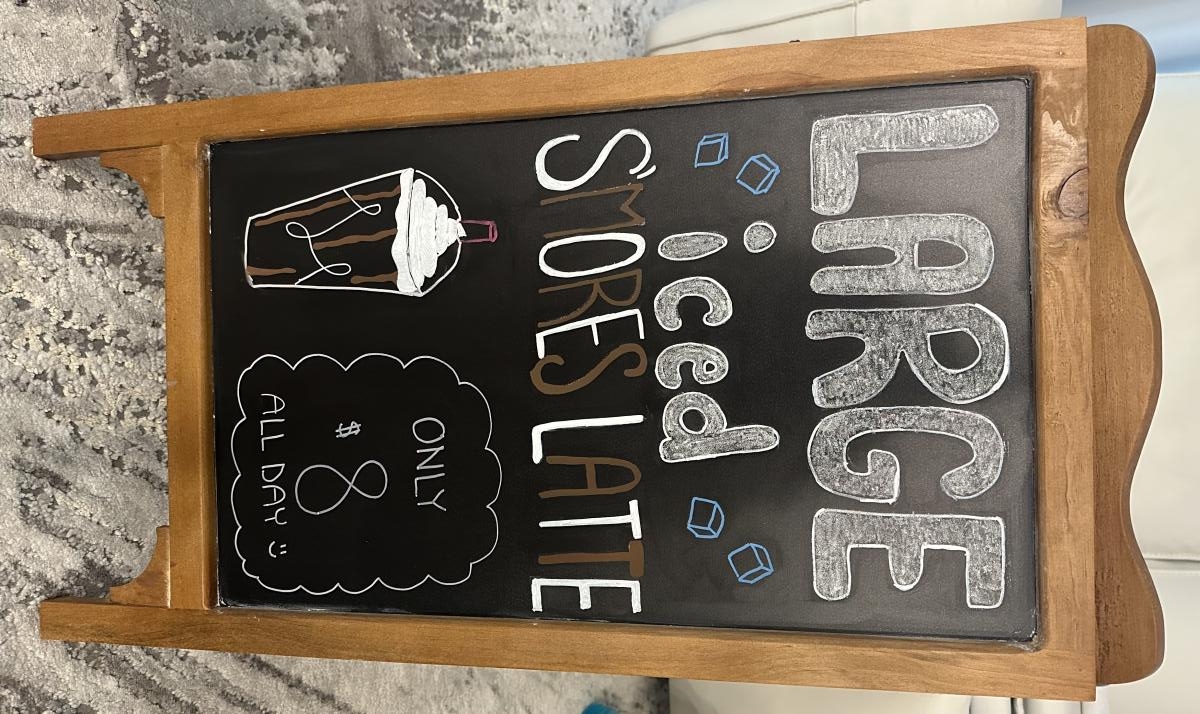 LARGE
iced
S'MORES LATTE
ONLY
$8
ALL DAY :)